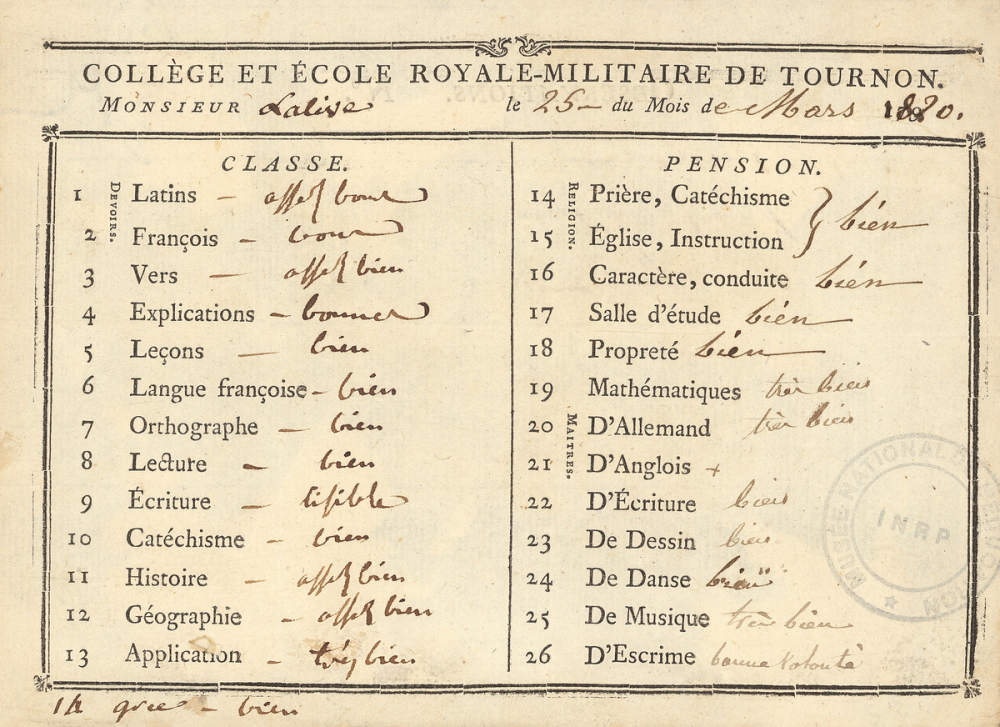 COLLÈGE ET ÉCOLE ROYALE-MILITAIRE DE TOURNON.
MONSIEUR Lalise le 25 du Mois de Mars 1820.
CLASSE.
DEVOIRS.
1 Latins – assez bons
2 François – bons
3 Vers – assez bien
4 Explications – bonnes
5 Leçons – bien
6 Langue françoise – bien
7 Orthographe – bien
8 Lecture – bien
9 Écriture – lisible
10 Catéchisme – bien
11 Histoire – assez bien
12 Géographie – assez bien
13 Application – très bien
14 grec – bien
PENSION.
RELIGION.
14 Prière, Catéchisme } bien
15 Église, Instruction
16 Caractère, conduite bien
17 Salle d'étude bien
18 Propreté bien
MAITRES.
19 Mathématiques très bien
20 D'Allemand très bien
21 D'Anglois +
22 D'Écriture bien
23 De Dessin bien
24 De Danse bien
25 De Musique très bien
26 D'Escrime bonne volonté
MUSÉE NATIONAL DE L'ÉDUCATION
INRP